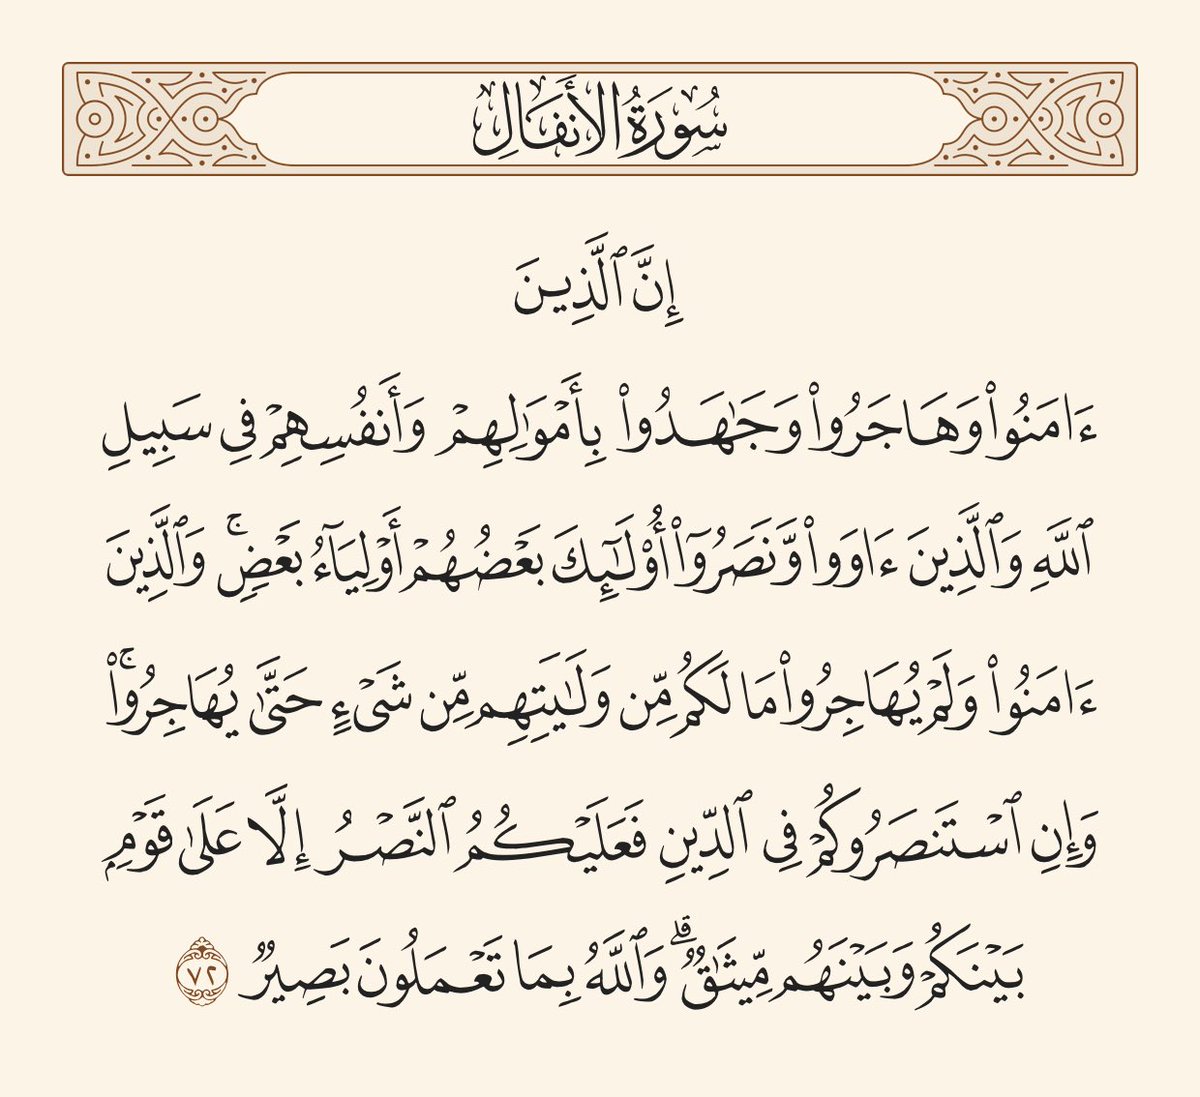 سُورَةُ الأَنفَالِ
إِنَّ ٱلَّذِينَ
ءَامَنُوا۟ وَهَاجَرُوا۟ وَجَٰهَدُوا۟ بِأَمْوَٰلِهِمْ وَأَنفُسِهِمْ فِى سَبِيلِ
ٱللَّهِ وَٱلَّذِينَ ءَاوَوا۟ وَّنَصَرُوٓا۟ أُو۟لَٰٓئِكَ بَعْضُهُمْ أَوْلِيَآءُ بَعْضٍ ۚ وَٱلَّذِينَ
ءَامَنُوا۟ وَلَمْ يُهَاجِرُوا۟ مَا لَكُم مِّن وَلَٰيَتِهِم مِّن شَىْءٍ حَتَّىٰ يُهَاجِرُوا۟ ۚ
وَإِنِ ٱسْتَنصَرُوكُمْ فِى ٱلدِّينِ فَعَلَيْكُمُ ٱلنَّصْرُ إِلَّا عَلَىٰ قَوْمٍۭ
بَيْنَكُمْ وَبَيْنَهُم مِّيثَٰقٌ ۗ وَٱللَّهُ بِمَا تَعْمَلُونَ بَصِيرٌ ٧٢